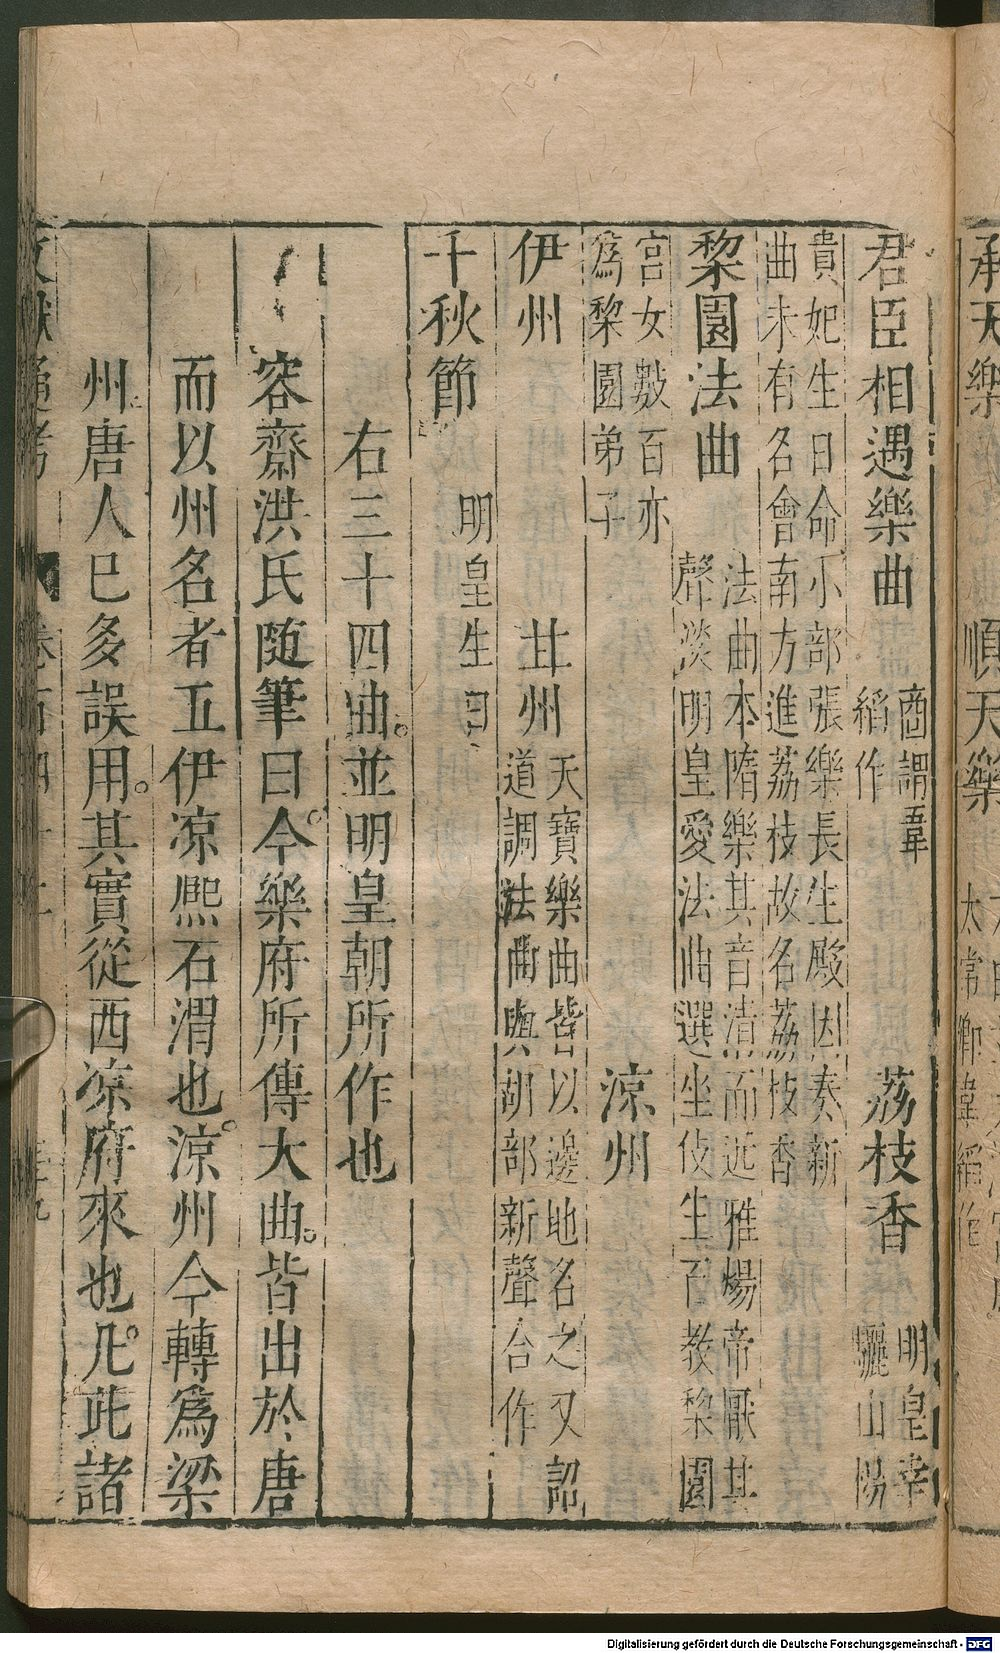 承天樂 順天樂
太常卿韋縚作
君臣相遇樂曲 商調韋縚作 荔枝香 明皇幸驪山楊
貴妃生日命小部張樂長生殿因奏新
曲未有名會南方進荔枝故名荔枝香
黎園法曲 法曲本隋樂其音清而近雅煬帝厭其
聲淡明皇愛法曲選坐伎生百教黎園
宮女數百亦
爲黎園弟子 涼州
伊州 甘州 天寶樂曲皆以邊地名之又詔
道調法曲與胡部新聲合作
千秋節 明皇生日
右三十四曲並明皇朝所作也
容齋洪氏随筆曰今樂府所傳大曲皆出於唐
而以州名者五伊凉熈石渭也涼州今轉爲梁
州唐人已多誤用其實從西凉府來也凡此諸
文獻通考 卷百四十 三十九
Digitalisierung gefördert durch die Deutsche Forschungsgemeinschaft - DFG